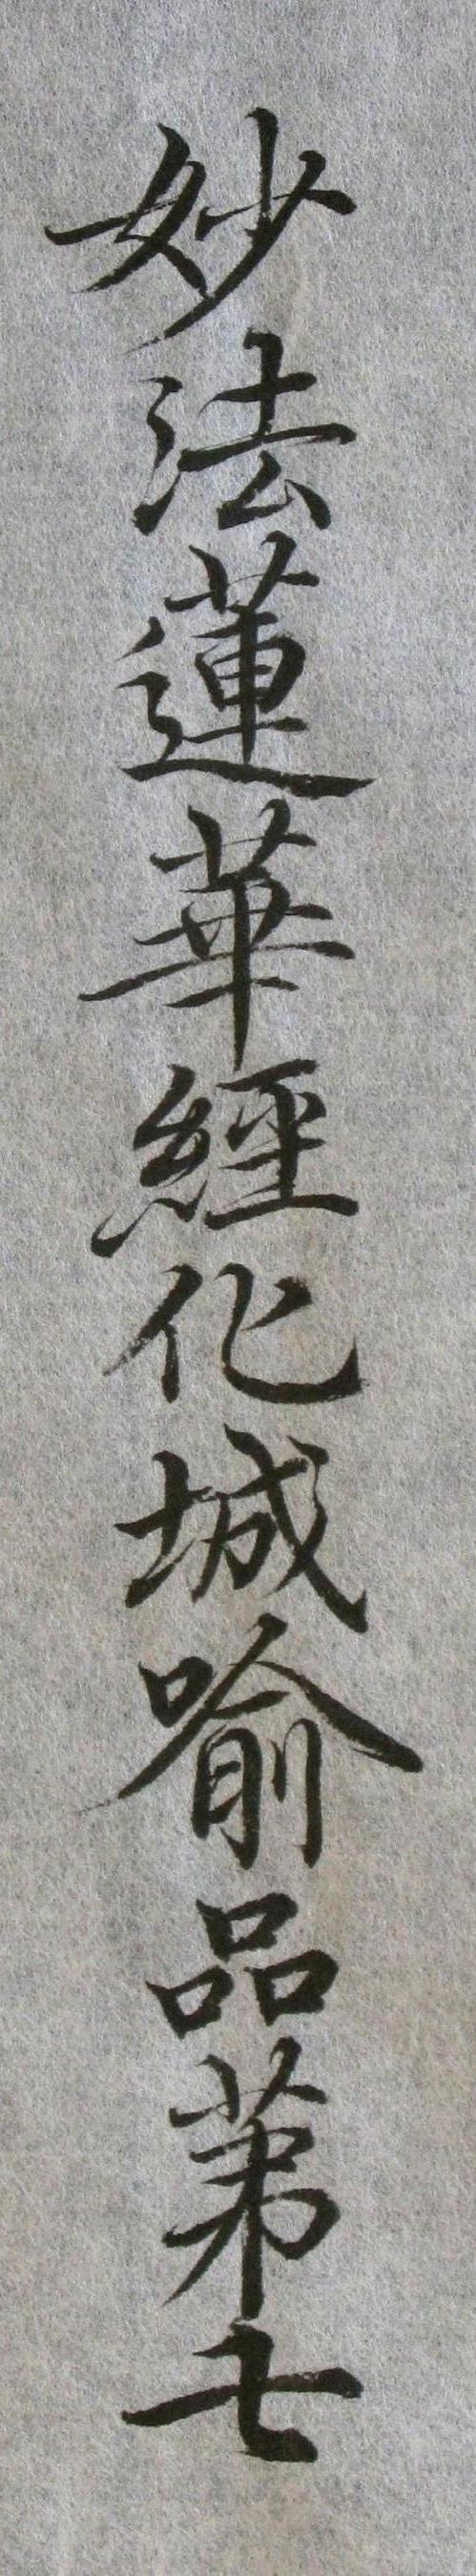 妙法蓮華經化城喻品第七